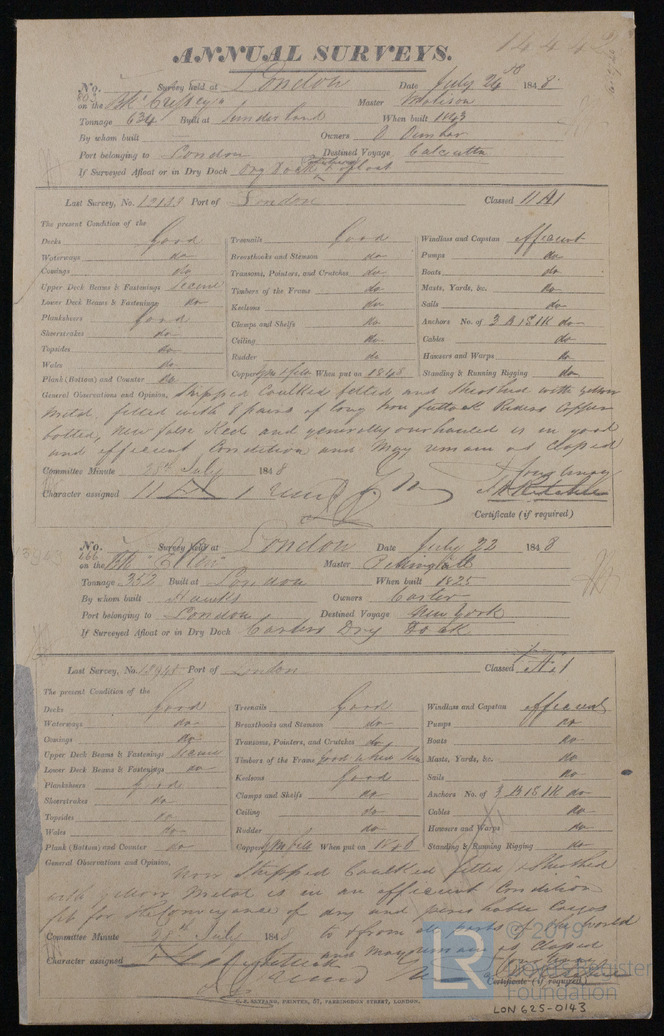 ANNUAL SURVEYS.
No. Survey held at London Date July 24 1848
on the Bk Master
Tonnage 634 Built at Sunderland When built 1843
By whom built Owners
Port belonging to London Destined Voyage Calcutta
If Surveyed Afloat or in Dry Dock Dry Dock & afloat
Last Survey, No. Port of London Classed A1
The present Condition of the
Decks good Treenails good Windlass and Capstan efficient
Waterways do Breasthooks and Stemson do Pumps do
Comings do Transoms, Pointers, and Crutches do Boats do
Upper Deck Beams & Fastenings Secure Timbers of the Frame do Masts, Yards, &c. do
Lower Deck Beams & Fastenings do Keelsons do Sails do
Planksheers good Clamps and Shelfs do Anchors No. of 3 B 1 S 1 K do
Sheerstrakes do Ceiling do Cables do
Topsides do Rudder do Hawsers and Warps do
Wales do Copper When put on 1848 Standing & Running Rigging do
Plank (Bottom) and Counter do
General Observations and Opinion, Stripped Caulked felted and Sheathed with yellow
Metal, fitted with 8 pairs of long Iron futtock Riders Copper
bolted, New false Keel and generally overhauled is in good
and efficient Condition and May remain as Classed
Committee Minute 28th July 1848
Character assigned
Certificate (if required)
No. 666 Survey held at London Date July 22 1848
on the Bk "Ellen" Master
Tonnage 352 Built at London When built 1825
By whom built Hawks Owners Carter
Port belonging to London Destined Voyage New York
If Surveyed Afloat or in Dry Dock Carters Dry Dock
Last Survey, No. Port of London Classed
The present Condition of the
Decks good Treenails good Windlass and Capstan efficient
Waterways do Breasthooks and Stemson do Pumps do
Comings do Transoms, Pointers, and Crutches do Boats do
Upper Deck Beams & Fastenings Secure Timbers of the Frame good Masts, Yards, &c. do
Lower Deck Beams & Fastenings do Keelsons good Sails do
Planksheers good Clamps and Shelfs do Anchors No. of 3 B 1 S 1 K do
Sheerstrakes do Ceiling do Cables do
Topsides do Rudder do Hawsers and Warps do
Wales do Copper When put on Standing & Running Rigging do
Plank (Bottom) and Counter do
General Observations and Opinion, Now Stripped Caulked felted & Sheathed
with yellow Metal is in an efficient Condition
fit for the Conveyance of dry and perishable Cargo
Committee Minute 28th July 1848 to & from all parts of the World
and may remain as Classed
Character assigned
Certificate (if required)
PRINTED, 37, FARRINGDON STREET, LONDON.
© 2019
LR Lloyd's Register
Foundation
LON 625-0143